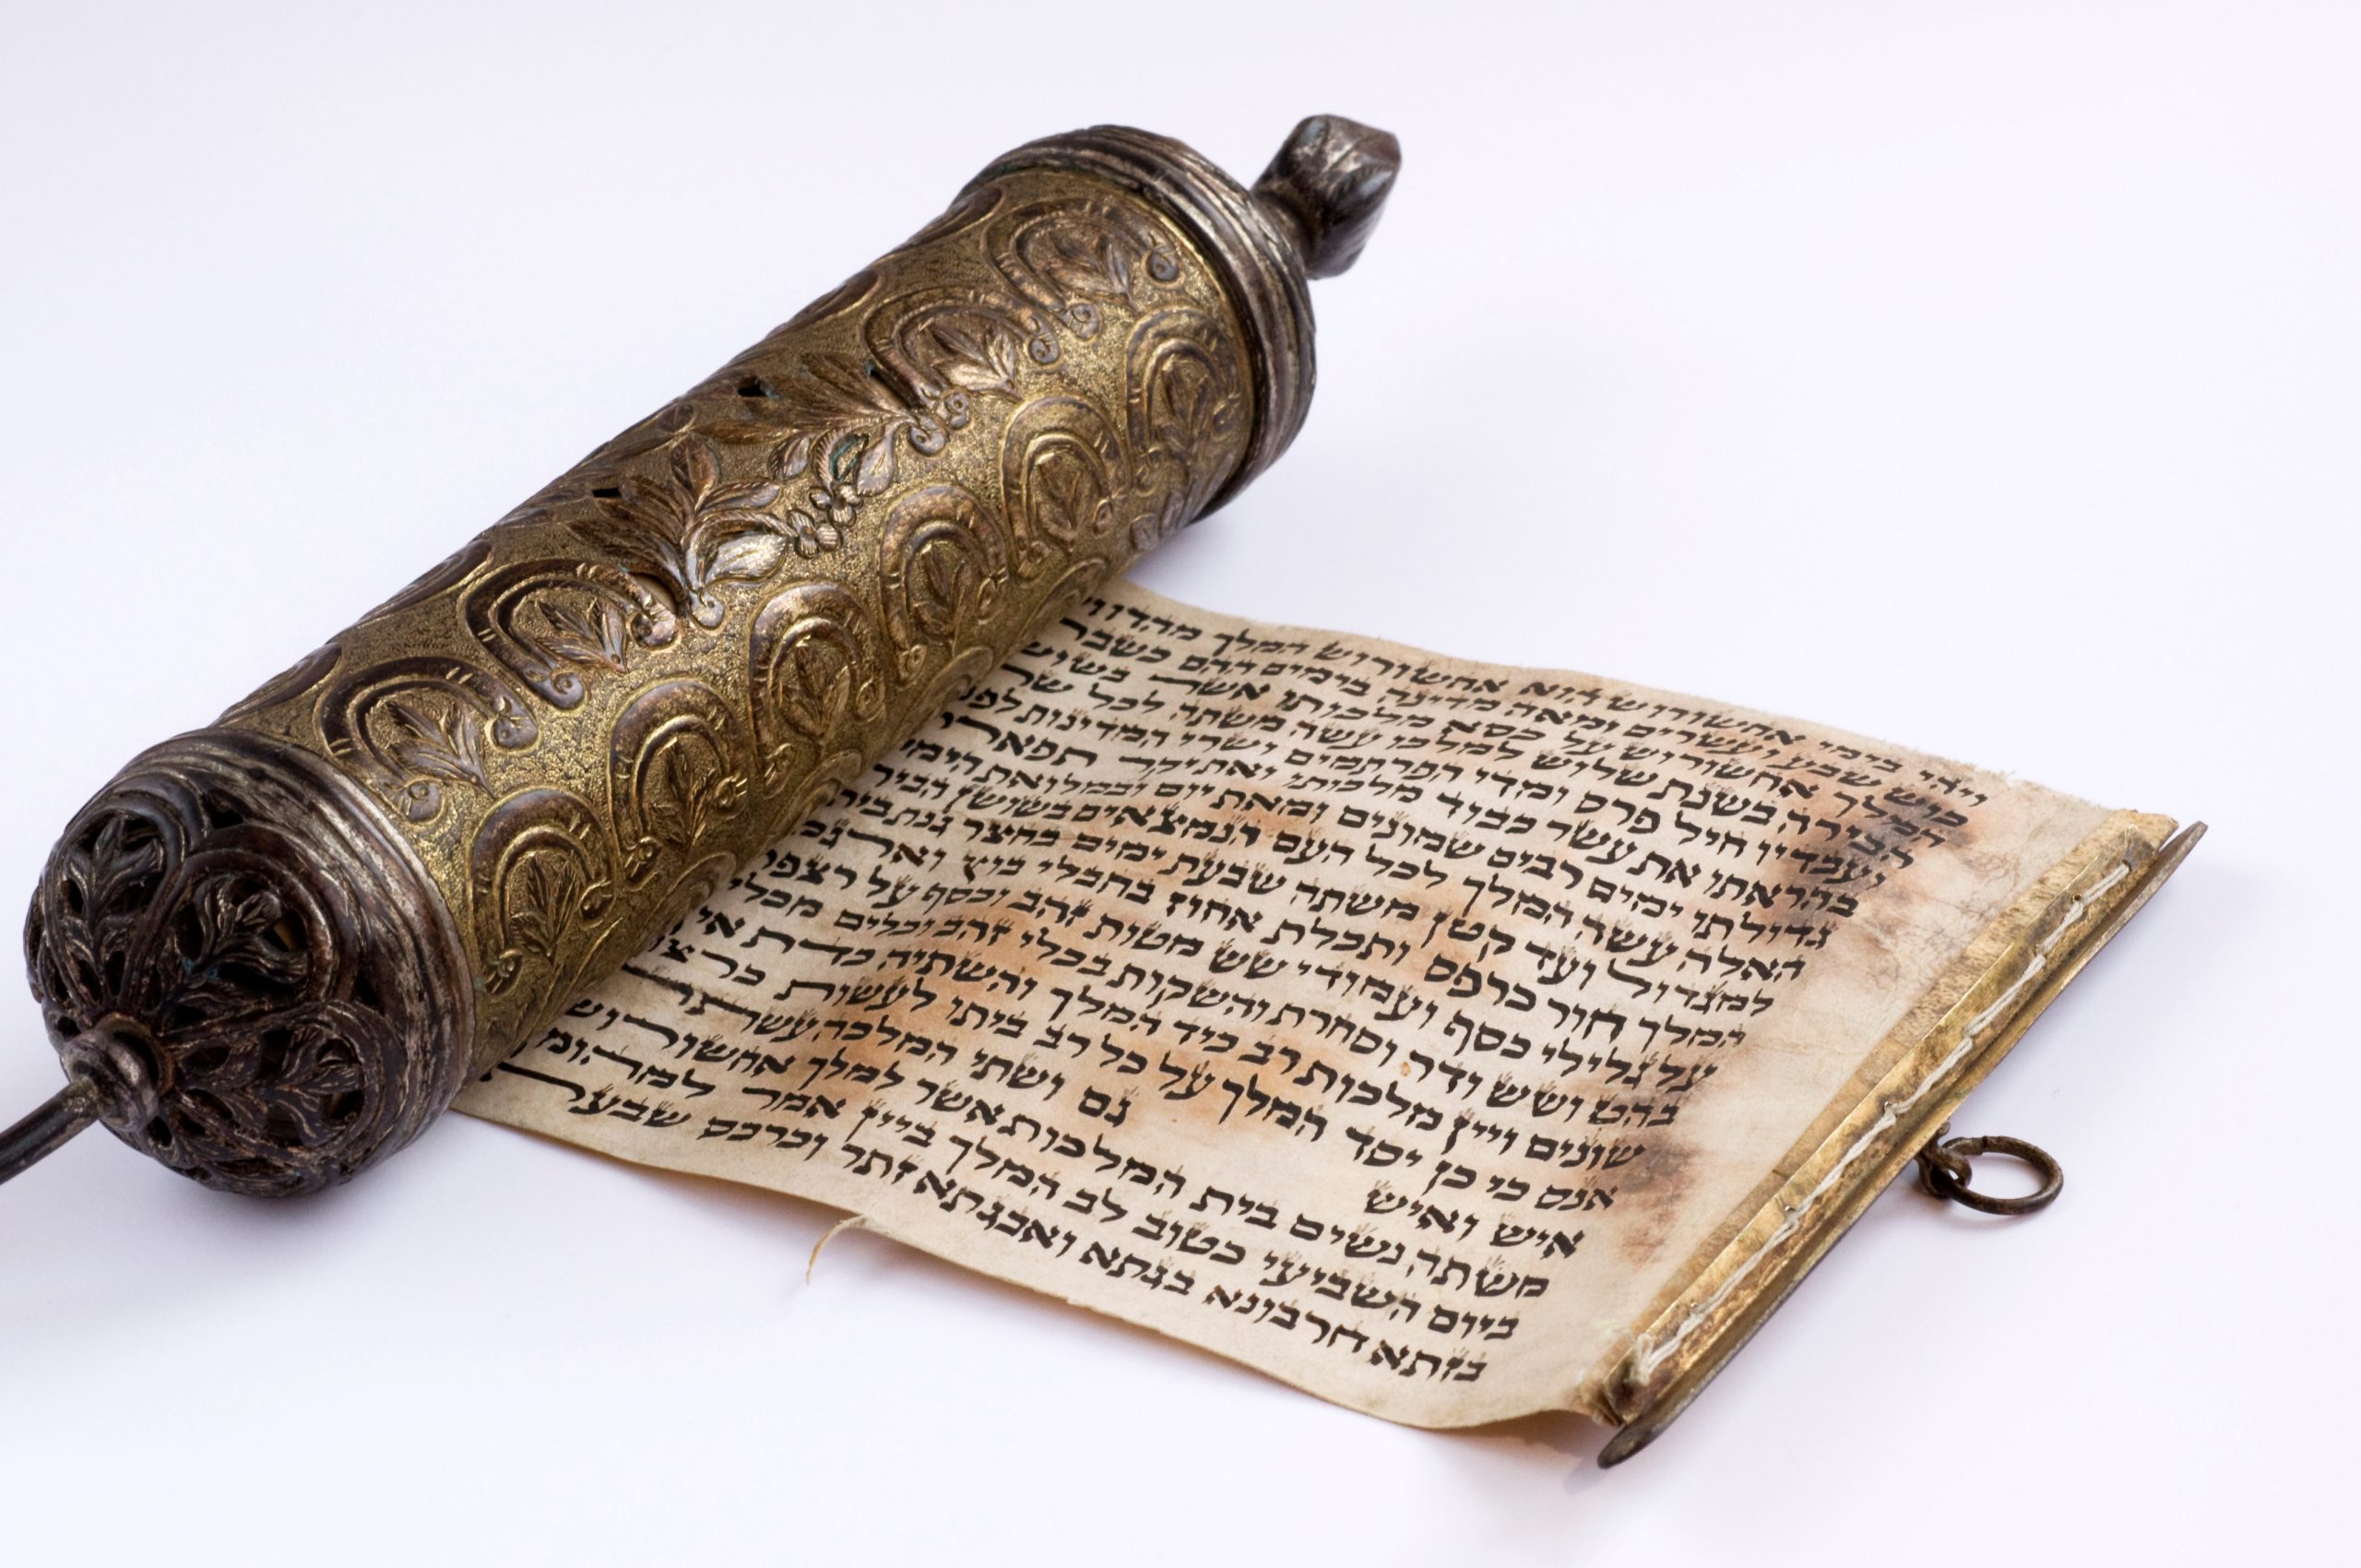 ויהי בימי אחשורוש הוא אחשורוש המלך מהדו
כוש שבע ועשרים ומאה מדינה בימים ההם כשבת
המלך אחשורוש על כסא מלכותו אשר בשוש
הבירה בשנת שלוש למלכו עשה משתה לכל שר
ועבדיו חיל פרס ומדי הפרתמים ושרי המדינות לפנ
בהראתו את עשר כבוד מלכותו ואת יקר תפאר
גדולתו ימים רבים שמונים ומאת יום ובמלואת הימי
האלה עשה המלך לכל העם הנמצאים בשושן הביר
למגדול ועד קטן משתה שבעת ימים בחצר גנת בית
המלך חור כרפס ותכלת אחוז בחבלי בוץ וארגמ
על גלילי כסף ועמודי שש מטות זהב וכסף על רצפ
בהט ושש ודר וסחרת והשקות בכלי זהב וכלים מכלי
שונים ויין מלכות רב כיד המלך והשתיה כדת אי
אנס כי כן יסד המלך על כל רב ביתו לעשות כרצו
איש ואיש גם ושתי המלכה עשתה
משתה נשים בית המלכות אשר למלך אחשורוש
ביום השביעי כטוב לב המלך ביין אמר למהומ
בזתא חרבונא בגתא ואבגתא זתר וכרכס שבעת